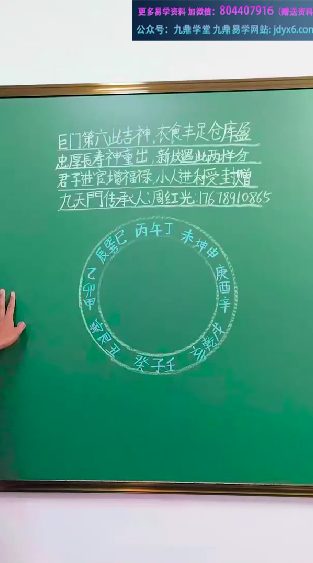 更多易学资料 加微信：804407916（赠送资料
公众号：九鼎学堂 九鼎易学网站：jdyx6.com
巨门第六此吉神,衣食丰足仓库盈
忠厚長寿神童出,
君子进官增福禄,小人进财受封赠
九天門传承人:周红光.17678910865
辰巽巳 丙午丁 未坤申
乙卯甲
庚酉辛
戌乾亥
癸子壬